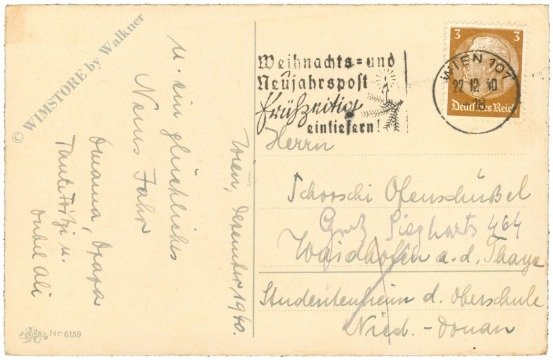 u. ein glückliches
Neues Jahr
Omama, Opapa
Tante Fritzi u.
Onkel Ali
Wien, Dezember 1940.
© WIMSTORE by Walkner
Nr. 6159
Weihnachts- und
Neujahrspost
frühzeitig
einliefern!
WIEN 107
22 12 40
3 3
Deutsches Reich
Herrn
Schorschi Ofenschüßel
Groß Siegharts 464
Waidhofen a. d. Thaya
Studentenheim d. Oberschule
Nied.-Donau